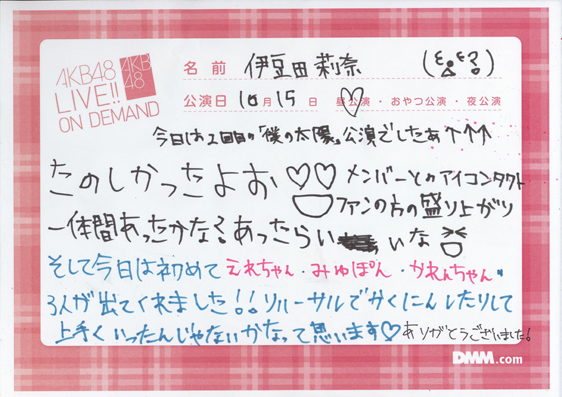 AKB48
LIVE!!
ON DEMAND
AKB
48
名 前 伊豆田莉奈
公演日 10 月 15 日 昼公演・おやつ公演・夜公演
今日は2回目の「僕の太陽」公演でしたあ↑↑↑
たのしかったよお♡♡ メンバーとのアイコンタクト
ファンの方の盛り上がり
一体間あったかな?あったらいいな
そして今日は初めて えれちゃん・みゅぽん・かれんちゃん・
3人が出てくれました!!リハーサルでかくにんしたりして
上手くいったんじゃないかなって思います♡ ありがとうございました!
DMM.com